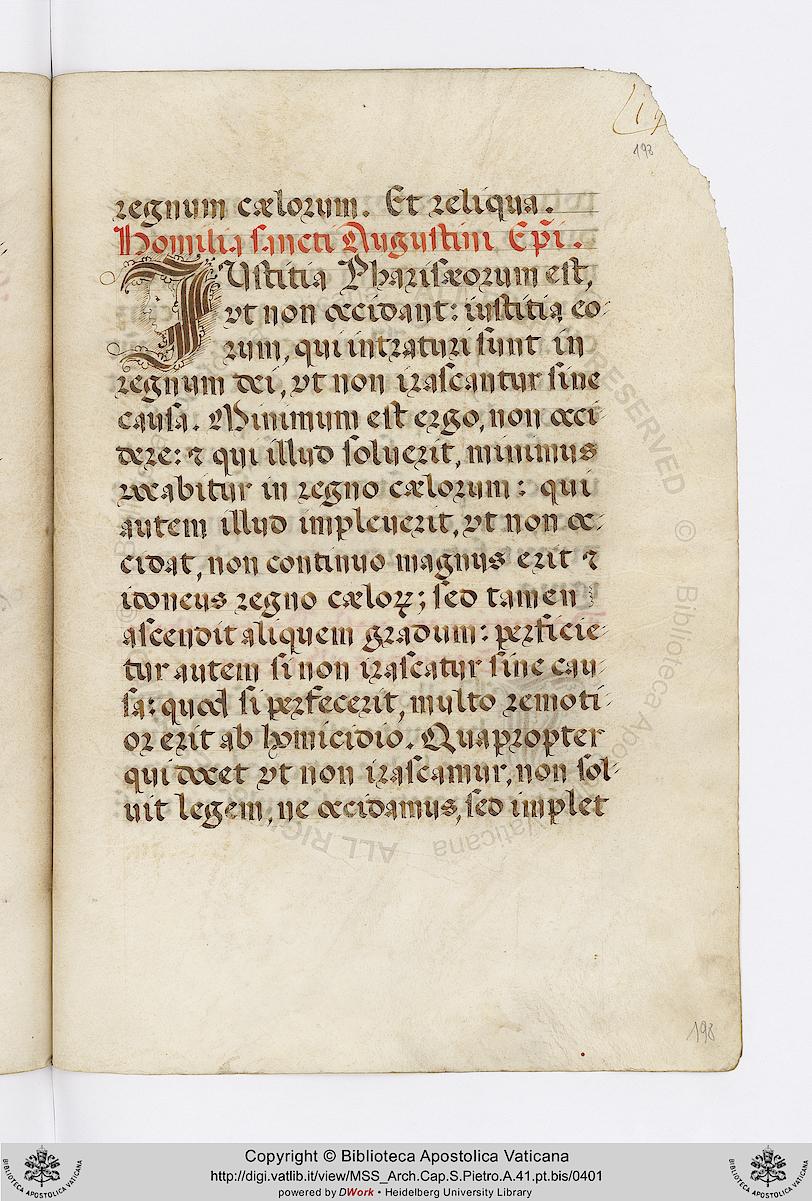 198
regnum cælorum. Et reliqua.
Homilia sancti Augustini Ep̃i.
IUstitia Pharisæorum est,
vt non occidant: iustitia eo-
rum, qui intraturi sunt in
regnum dei, vt non irascantur sine
causa. Minimum est ergo, non occi
dere: ⁊ qui illud soluerit, minimus
vocabitur in regno cælorum: qui
autem illud impleuerit, vt non oc-
cidat, non continuo magnus erit ⁊
idoneus regno cæloꝝ; sed tamen
ascendit aliquem gradum: perficie-
tur autem si non irascatur sine cau-
sa: quod si perfecerit, multo remoti-
or erit ab homicidio. Quapropter
qui docet vt non irascamur, non sol-
uit legem, ne occidamus, sed implet
198
ALL RIGHTS RESERVED © Biblioteca Apostolica Vaticana
Copyright © Biblioteca Apostolica Vaticana
http://digi.vatlib.it/view/MSS_Arch.Cap.S.Pietro.A.41.pt.bis/0401
powered by DWork • Heidelberg University Library
BIBLIOTECA APOSTOLICA VATICANA
BIBLIOTECA APOSTOLICA VATICANA